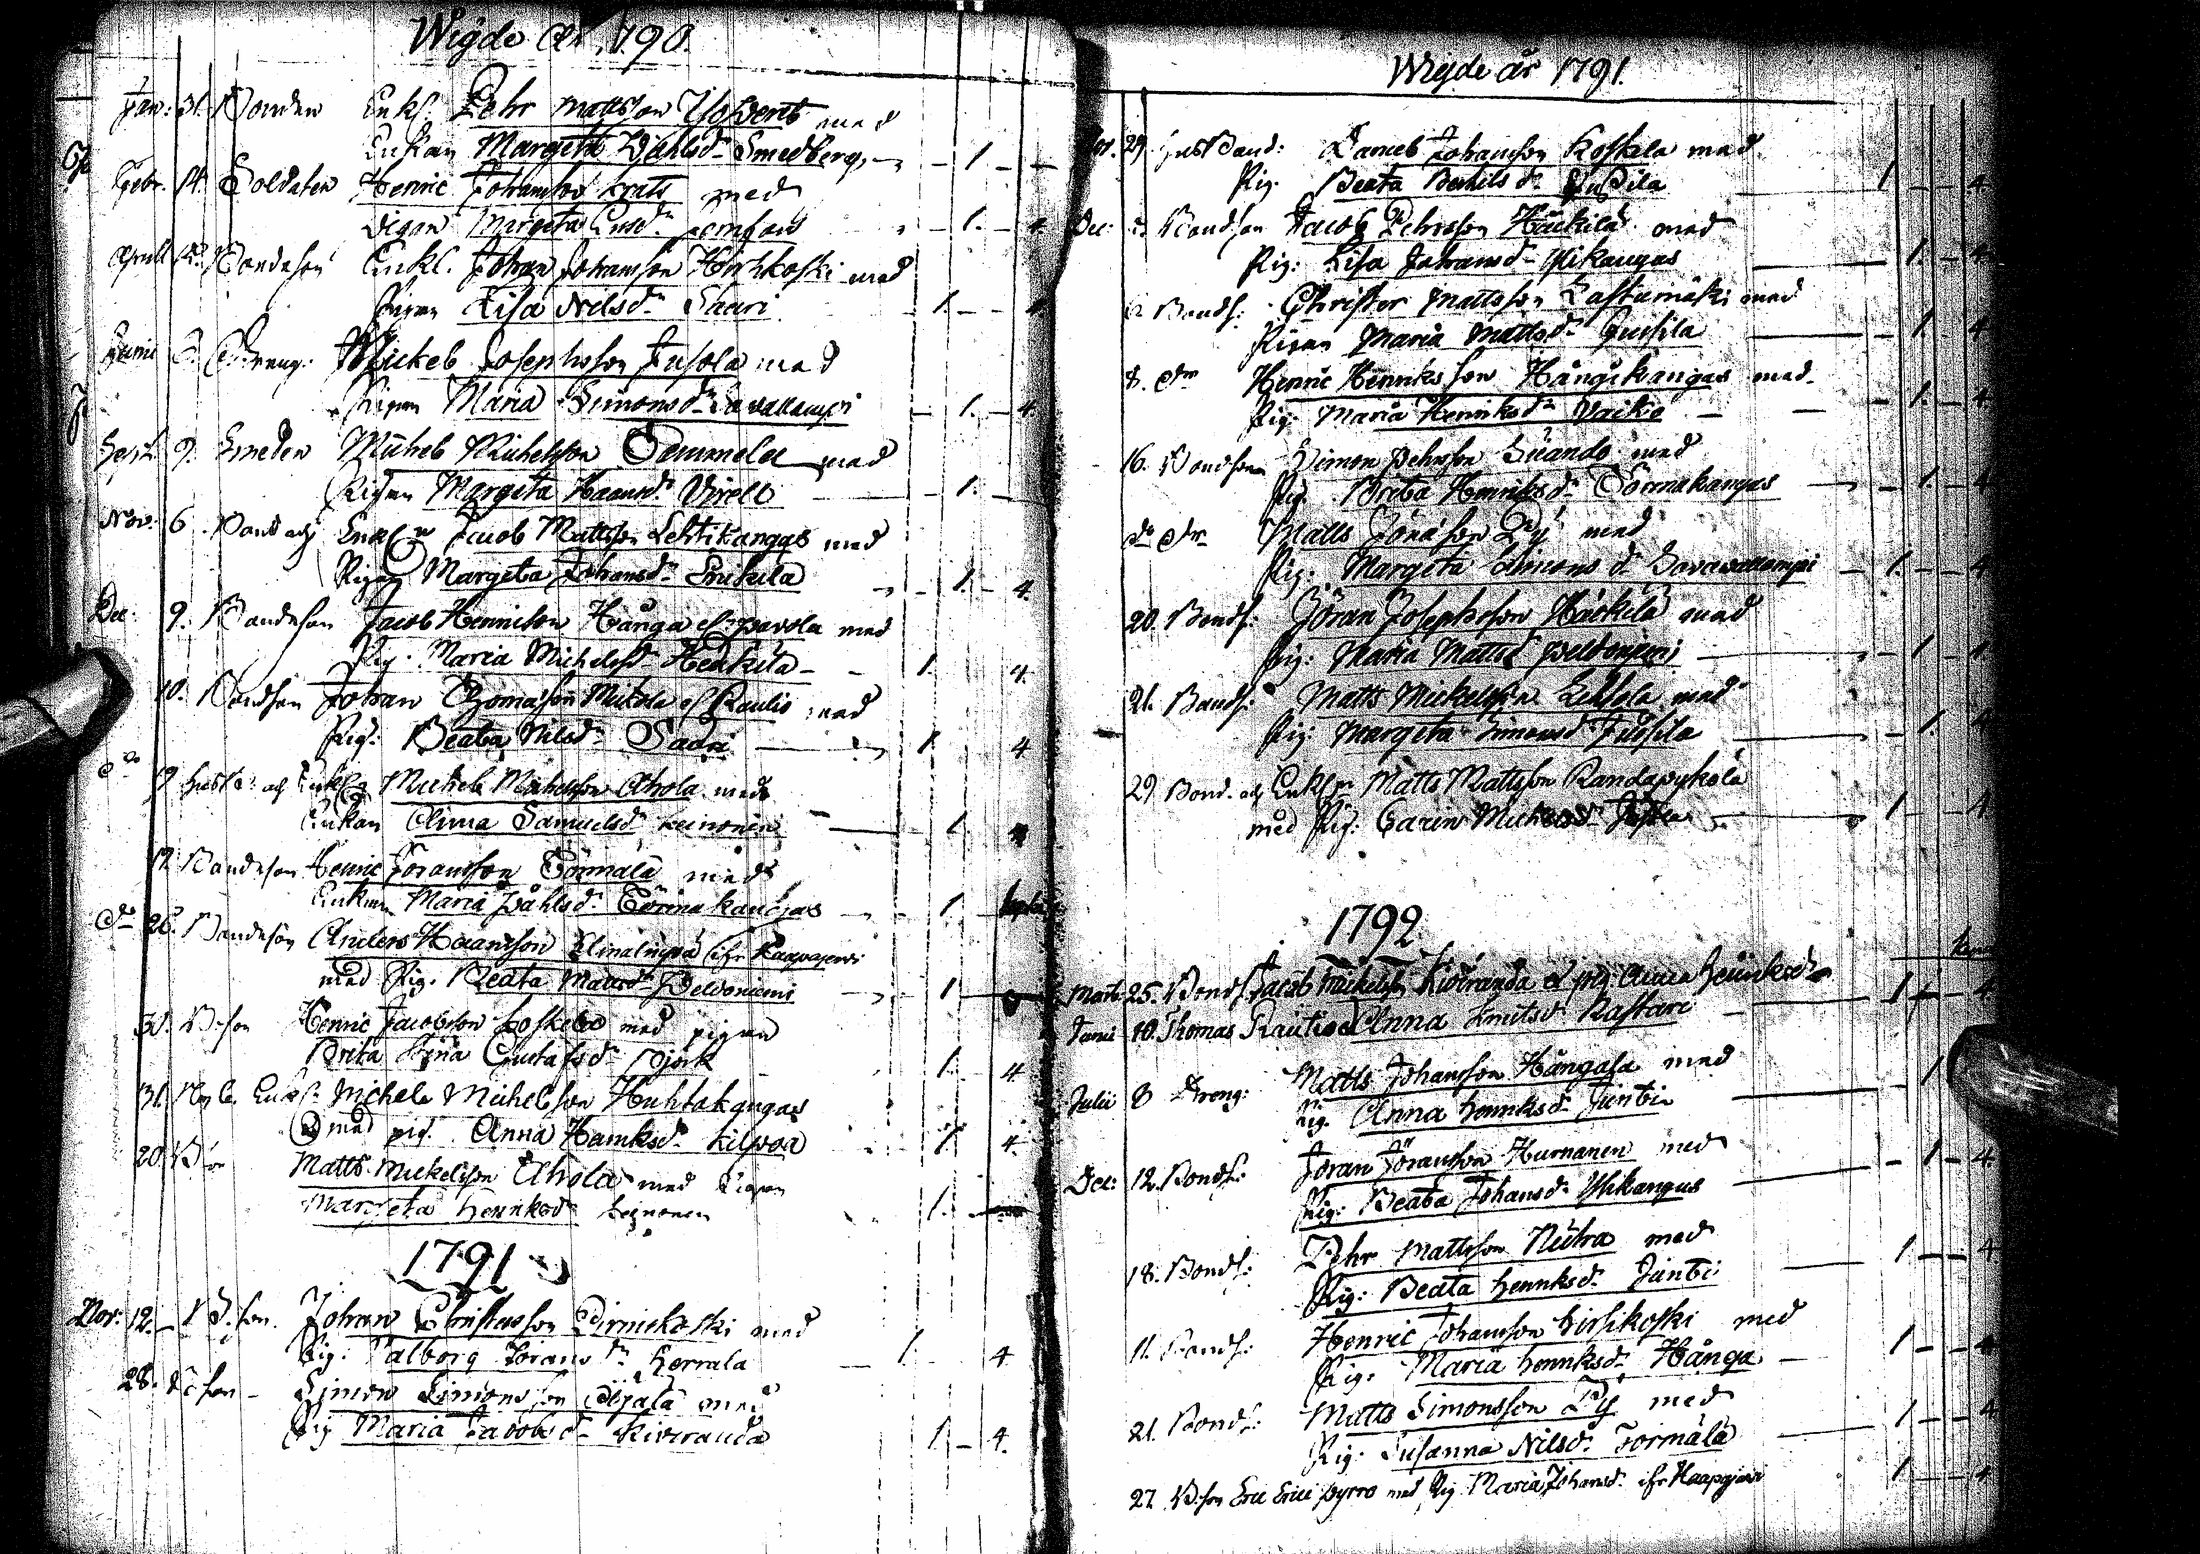 Wigde År 1790.
Jan: 31. Bonden Enkl. Pehr Mattsson med
Enkan Margeta Påhlsdr Smedberg 1.
Febr. 14. Soldaten Henric Johansson Krats med
Pigan Margeta 1. 4.
Aprill Bondeson Enkl. Johan Johansson Hirsikoski med
Pigan Lisa Nilsdr Saari 1. 4.
Junii 3. Dreng: Mickel Josephsson Jusola med
Pigan Maria Simonsdr Savallampi 1. 4.
Sept. 9. Smeden Michel Michelsson Sammela med
Pigan Margeta Hansdr 1.
Nov: 6. Bond och Enkl. Jacob Mattsson Lehtikangas med
Pigan Margeta Johansdr Erikila 1. 4.
Dec: 9. Bondeson Jacob Henricson Hånga el. Pavola med
Pig. Maria Michelsdr Heikila 1. 4.
10. Bondson Johan Thomasson Mikola el. Raulio med
Pig: Beata Nilsdr Saari 1. 4.
dn 19 och Enkl. Mickel Michelsson Ahola med
Enkan Anna Samuelsdr Leinonen 1. 4
Bondeson Henric Göransson Törmälä med
Enkan Maria Påhlsdr Törmäkangas 1.
dn 26. Bondeson Anders Hansson ifr Haapajervi
med Pig. Beata Mattsdr Peldoniemi 1.
30. B:son Henric Jacobsson Koskela med pigan
Brita Stina Gustafsdr Björk 1. 4
31. Enkl: Michel Michelsson Huhtakangas
med pig. Anna Henriksdr Kilpua 1. 4.
20. B:son Matts Mickelsson Ahola med Pigan
Margeta Henriksdr Leinonen 1.
1791
Nov: 12. B.son. Johan Christersson Pirneskoski med
Pig: Valborg Göransdr Kerrala 1. 4.
28. B:son Simon Simonsson Ojala med
Pig Maria Jacobsdr Kiviranda 1. 4.
Wigde år 1791.
29. Daniel Johansson Koskela med
Pig. Beata Bertilsdr Jussila 1. 4.
Dec: Bondson Jacob Pehrsson Häikilä med
Pig: Lisa Johansdr Ylikangas 1. 4.
Bonds: Christer Mattsson Lastumäki med
Pigan Maria Mattsdr Jussila 1. 4.
8. dn Henric Henriksson Hångikangas med
Pig: Maria Henriksdr Vaitio 1. 4.
16. Bondson Simon Pehrsson Suando med
Pig. Brita Henriksdr Törmäkangas 1. 4.
dn dn Matts Jönsson Py med
Pig: Margeta Simonsdr Savarallampi 1. 4.
20. Bonds: Jöran Josephsson Häikilä med
Pig: Maria Mattsd Peldoniemi 1. 4.
21. Bonds: Matts Mickelsson Lehtola med
Pig: Margeta Simonsdr Jussila 1. 4.
29. Bond. och Enkl. Matts Mattsson Randapykola
med Pig: Carin Mickelsdr 1. 4.
1792
Martii 25. Bonds: Jacob Mickelsson Kiviranda & pig. Anna Henriksdr 1. 4.
Junii 10. Thomas Rautio & Anna Knutsdr Rastari
Julii 8 Dreng: Matts Johansson Hångala med
Pig. Anna Henriksdr Juntti 1
Dec: 12. Bonds: Jöran Jöransson Hurnanen med
Pig: Beata Johansdr Ylikangas 1. 4.
18. Bonds: Pehr Mattsson Niitra med
Pig: Beata Henriksdr Junti 1. 4
11. Bonds: Henric Johansson Hirsikoski med
Pig: Maria Henriksdr Hånga 1. 4
21. Bonds: Matts Simonsson Py med
Pig: Susanna Nilsdr Törmälä 1. 4
27. B:son Eric Eric Pyrro med Pig. Maria Johansdr ifr Haapajervi 1. 4.